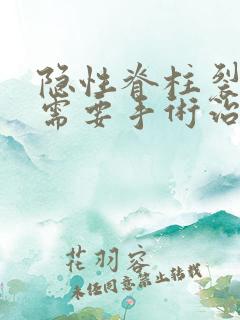 隐性脊柱裂
需要手術治
花羽容
未经同意禁止转载